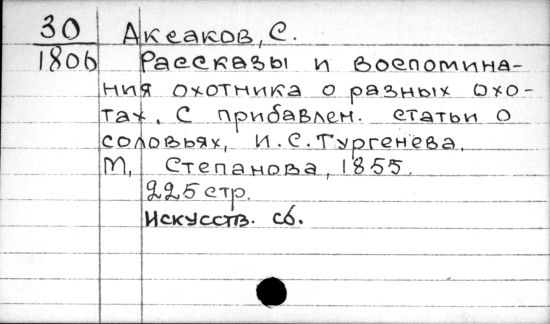 30 Аксаков, С.
1806 Рассказы и воспомина-
ния охотника о разных охо-
тах. С прибавлен. статьи о
соловьях, И.С.Тургенева.
М, Степанова, 1855.
225 стр.
Искусств. сб.